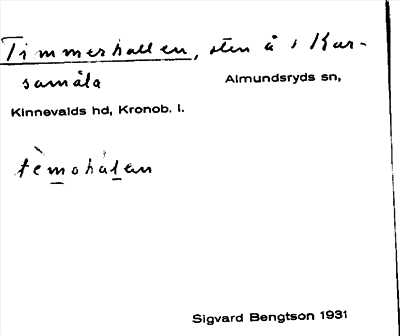 Timmerhallen, sten å i Kur-
samåla Almundsryds sn,
Kinnevalds hd, Kronob. l.
tèmohálan
Sigvard Bengtson 1931